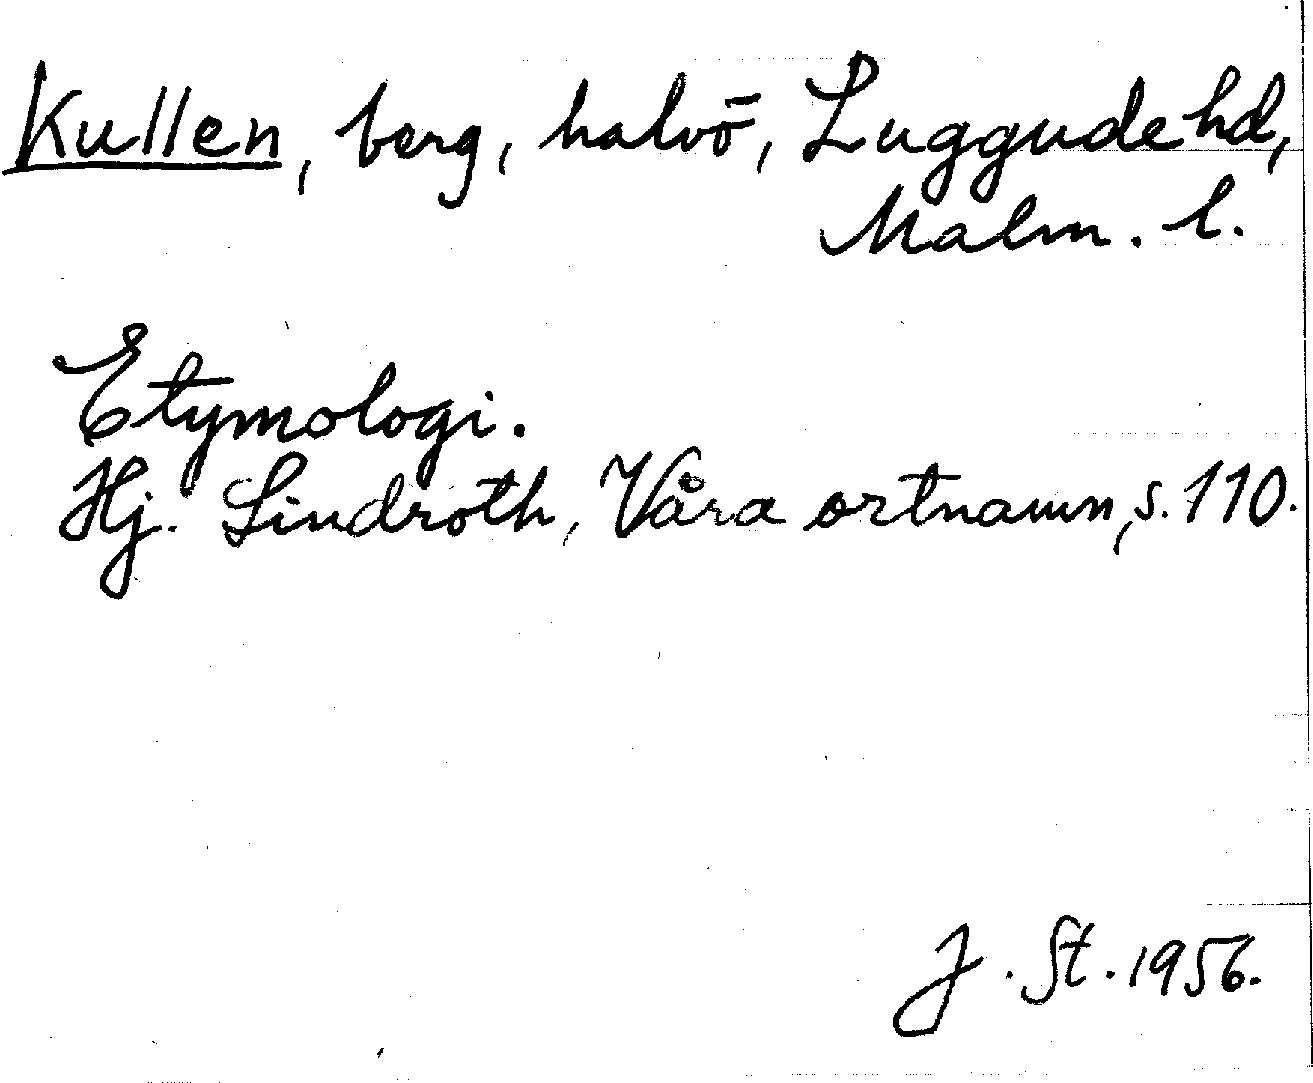 Kullen, berg, halvö, Luggude hd,
Malm. l.
Etymologi.
Hj. Lindroth, Våra ortnamn, s. 110.
J. St. 1956.